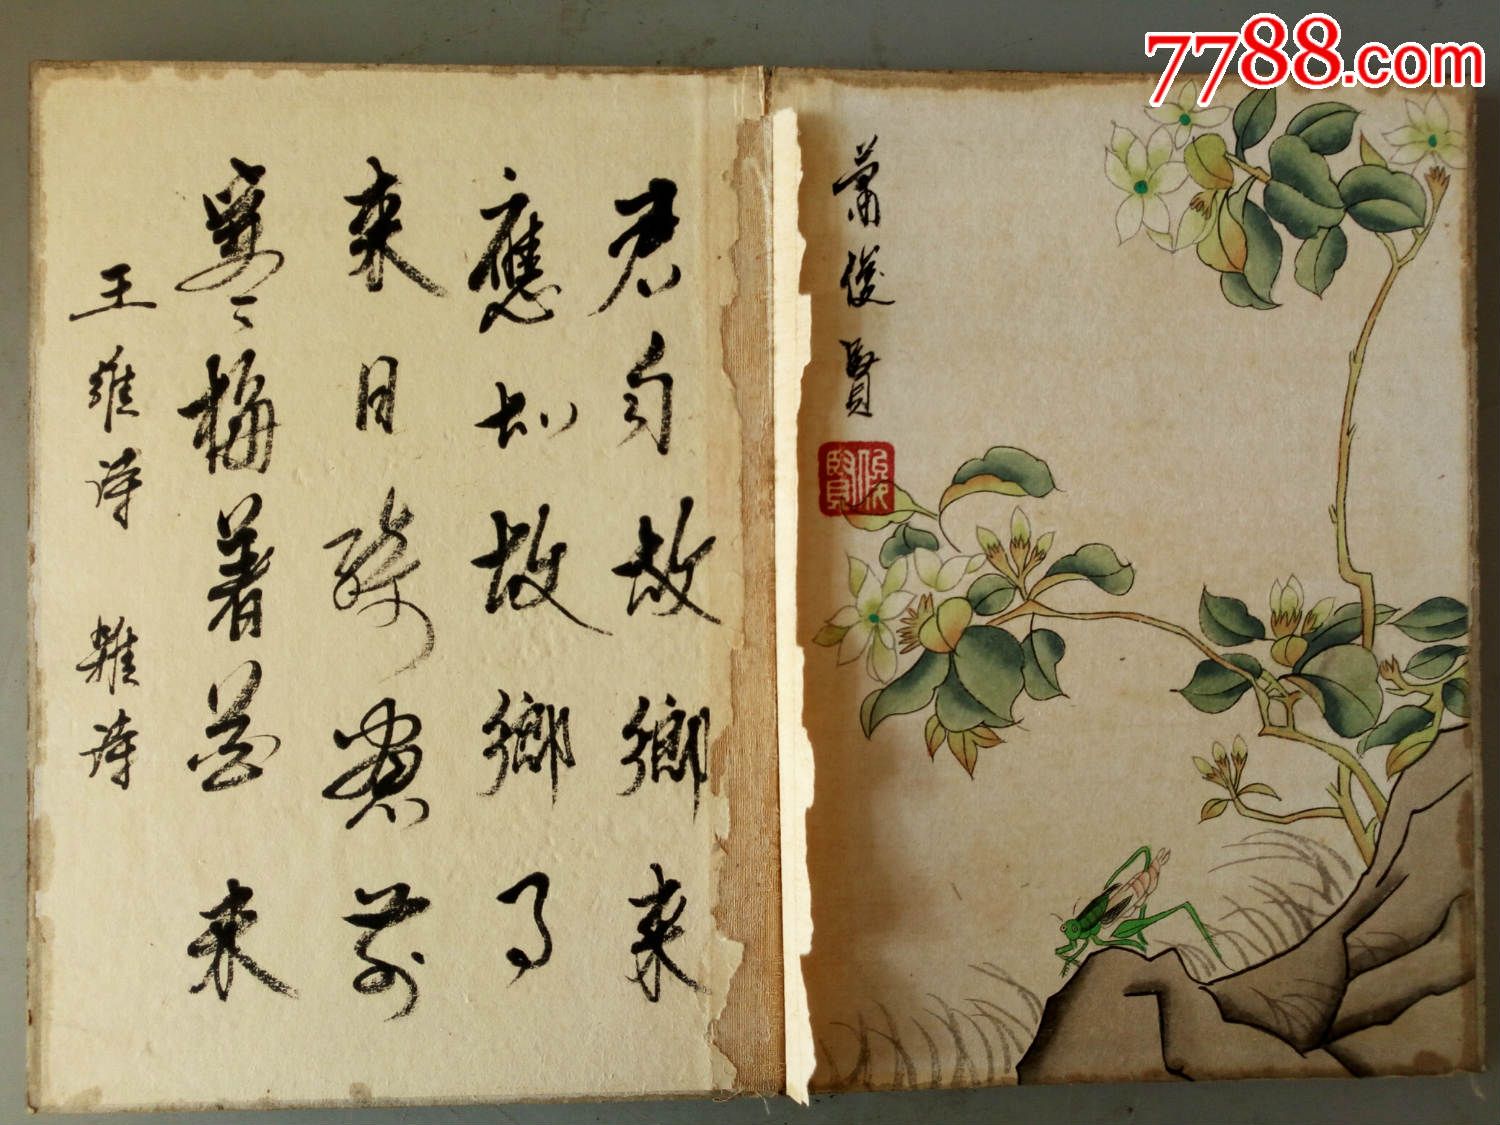 7788.com
蕭俊賢
俊賢
君自故鄉來
應知故鄉事
來日綺窗前
寒梅著花未
王維詩 雜詩